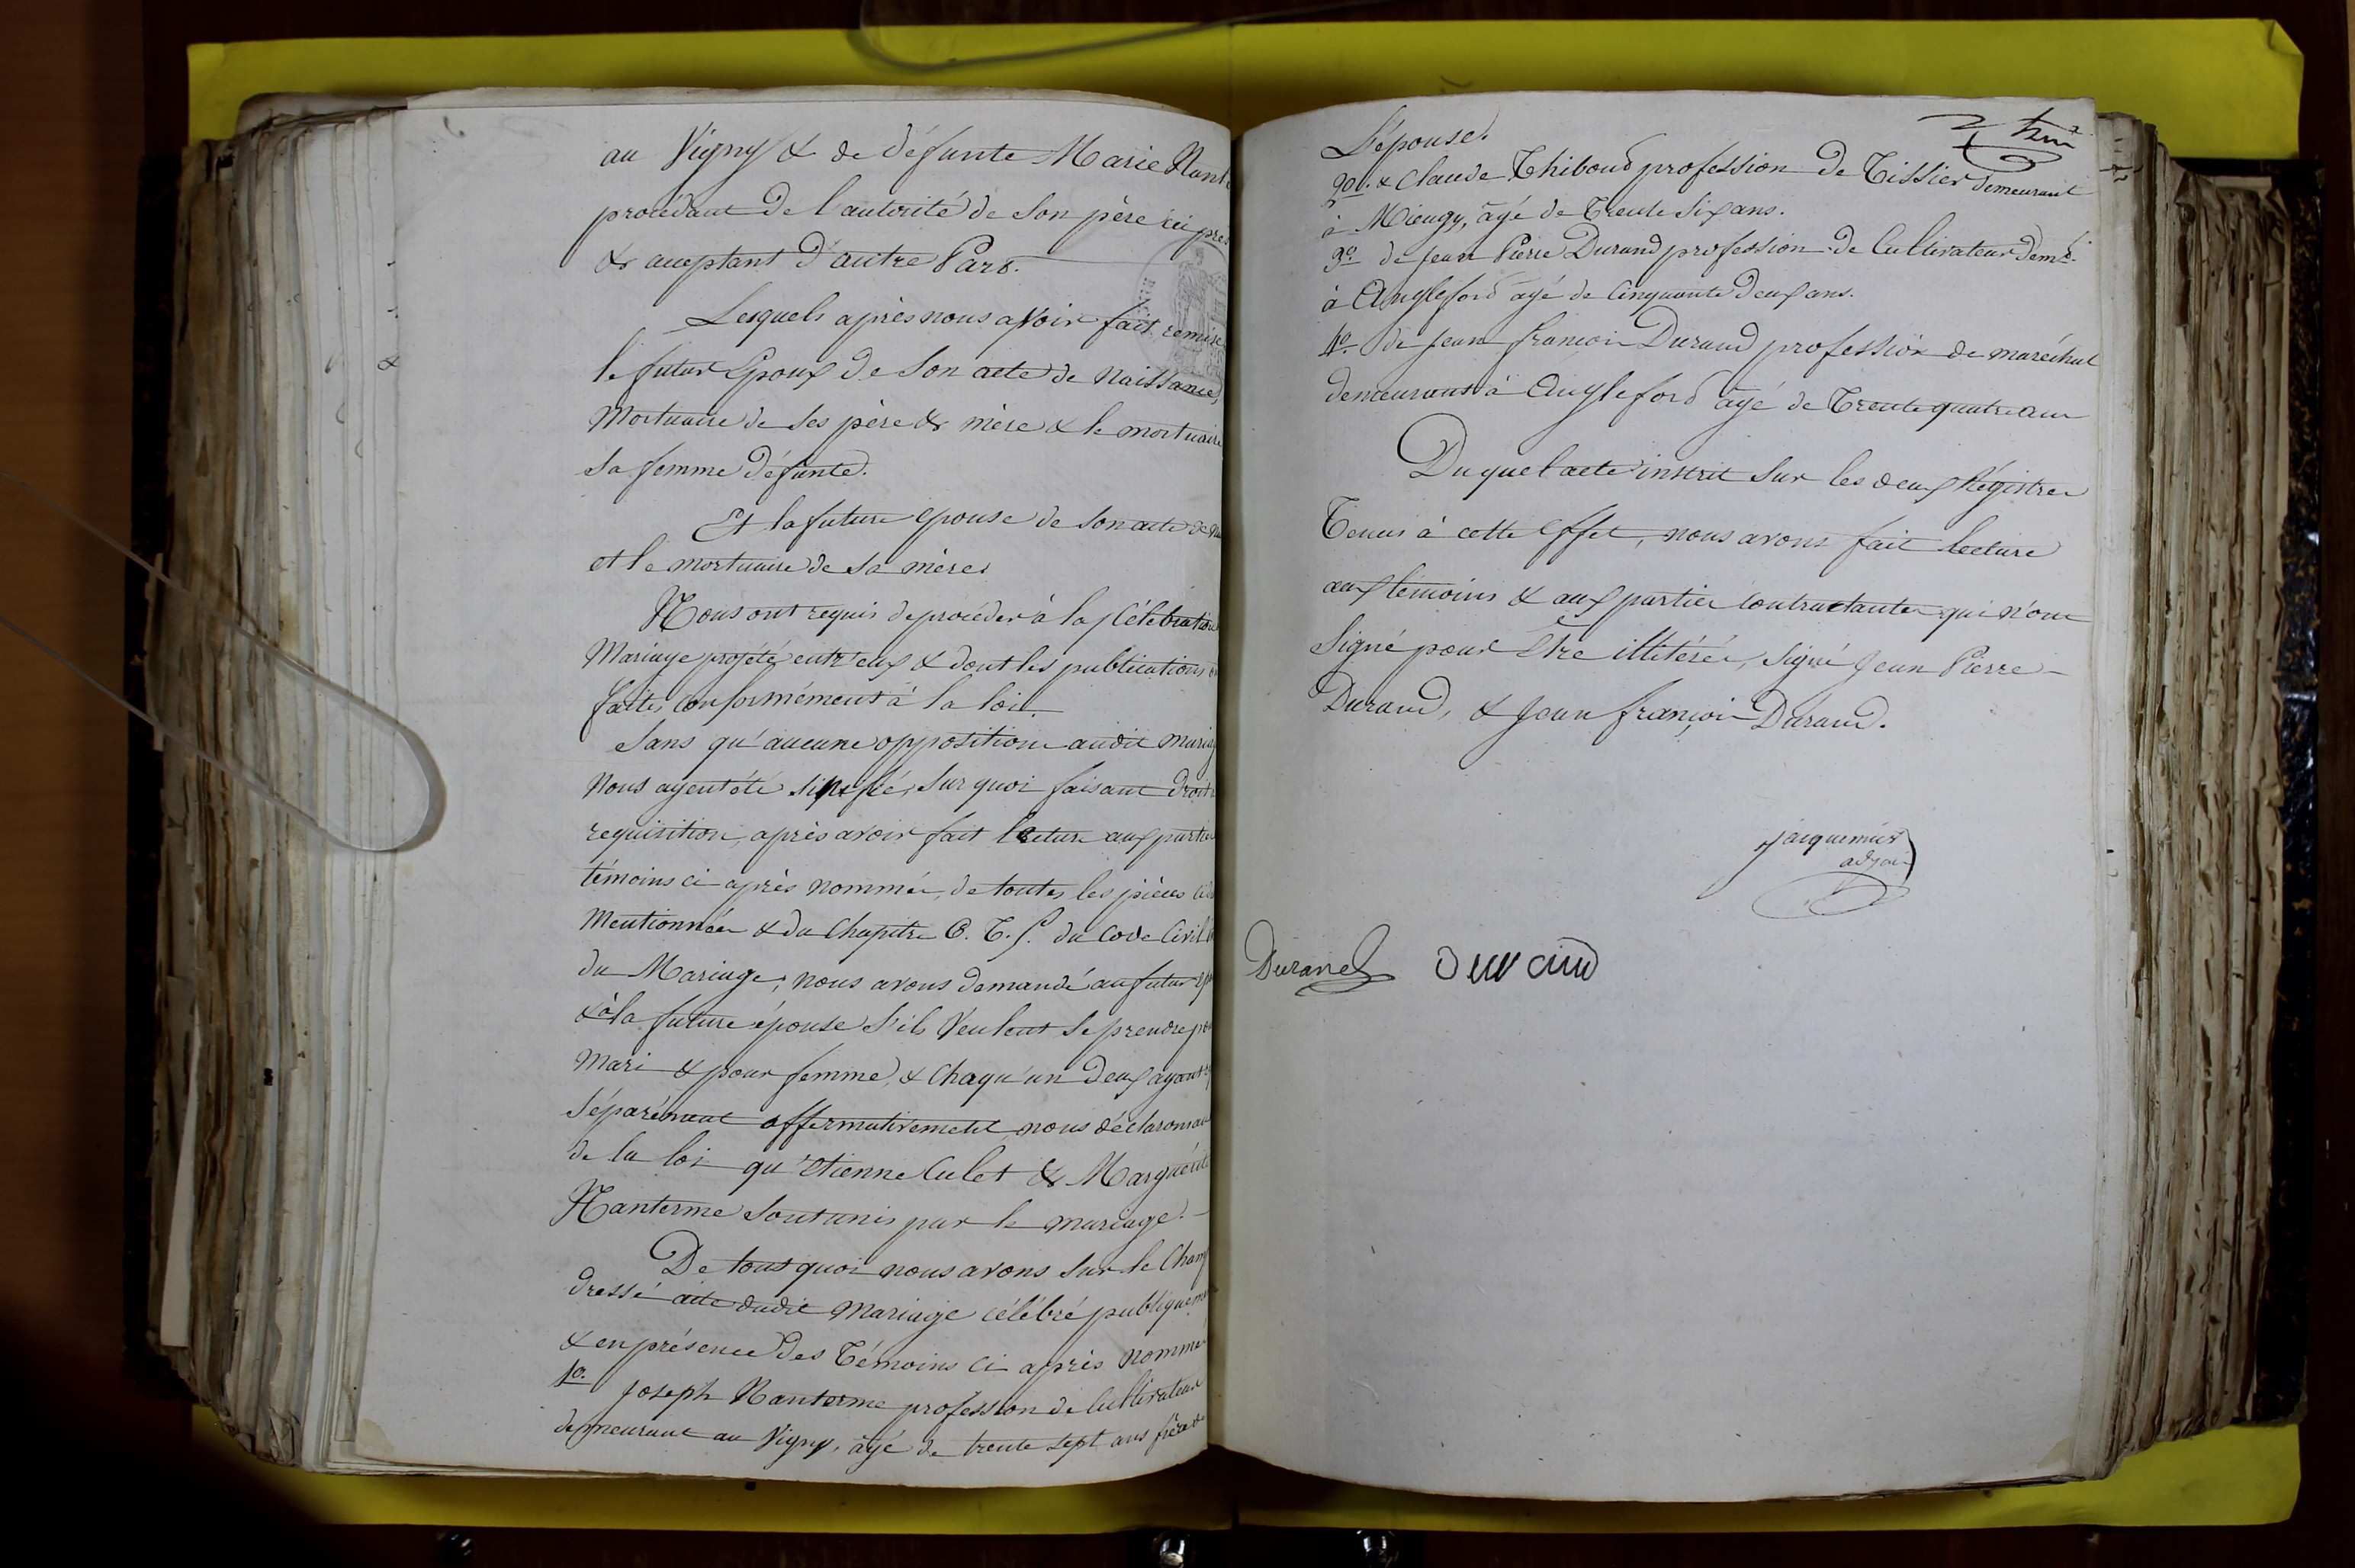 au Vigny & de défunte Marie Nant
procédant de l'autorité de Son père ici pres
& acceptant d'autre Part.
Lesquels après nous avoir fait remise
le futur Epoux de Son acte de Naissance,
Mortuaire de Ses père & mère & le mortuaire
Sa femme défunte.
Et la future épouse de Son acte de
et le mortuaire de Sa mère.
Nous ont requis de procéder à la Célébration
Mariage projeté entr'eux & dont les publications
faites Conformément à la loi.
Sans qu'aucune opposition audit mariag
Nous ayent été Signifié, Sur quoi faisant droit
requisition, après avoir fait lecture aux parties
témoins ci après nommés, de toutes les pièces
Mentionnées & du Chapitre 6. T. 5. du Code Civil
du Mariage, nous avons demandé au futur
& à la future épouse S'ils Veulent Se prendre
Mari & pour femme, & Chaqu'un deux ayant
Séparément affirmativement nous déclarons au
de la loi qu'Etienne Culet & Marguérite
Nanterme Sont unis par le mariage.
De tout quoi nous avons Sur le Cham
dressé acte dudit Mariage célébré publiqueme
& en présence des Témoins ci après nommé
1o. Joseph Nanterme profession de Cultivateur
demeurant au Vigny, âgé de trente Sept ans frère de
L'épouse.
2o. & Claude Thiboud profession De Tissier demeurant
à Mieugy, âgé de Trente Six ans.
3o. de Jean Pierre Durand profession de Cultivateur demt.
à Angleford agé de Cinquante deux ans.
4o. de Jean françois Durand profession de maréchal
demeurant à Angleford âgé de Trente quatre ans
Duquel acte inscrit Sur les deux Régistres
Tenus à cette Effet, nous avons fait lecture
aux témoins & aux parties Contractantes qui n'ont
Signé pour Etre illitérés, Signé Jean Pierre
Durand, & Jean françois Durand.
Jacquemier
adjoint
Durand Durand